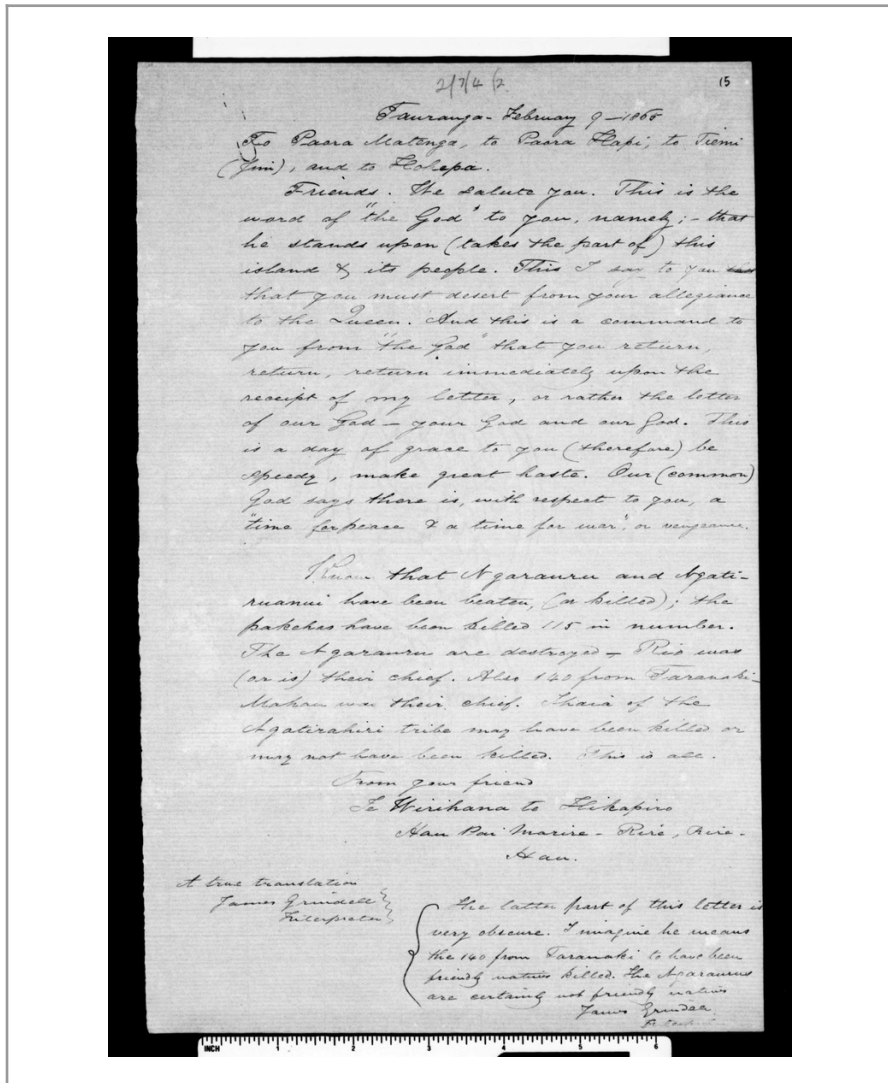 2/7/4 /2
15
Tauranga - February 9 - 1865
To Paora Matenga, to Paora Hapi, to Tiemi
(Jim), and to Hohepa.
Friends. We salute you. This is the
word of "the God" to you, namely; - that
he stands upon (takes the part of) this
island & its people. This I say to you
that you must desert from your allegiance
to the Queen. And this is a command to
you from "the God" that you return,
return, return immediately upon the
receipt of my letter, or rather the letter
of our God - your God and our God. This
is a day of grace to you (therefore) be
speedy, make great haste. Our (common)
God says there is, with respect to you, a
"time for peace & a time for war", or vengeance.
Know that Ngarauru and Ngati-
ruanui have been beaten, (or killed); the
pakehas have been killed 115 in number.
The Ngarauru are destroyed - Rio was
(or is) their chief. Also 140 from Taranaki -
was their chief. Ihaia of the
Ngatirahiri tribe may have been killed or
may not have been killed. This is all.
From your friend
Te Wirihana to Hikapiro
Hau Pai Marire - Rire, Rire -
Hau.
A true translation
James Grindell
Interpreter
The latter part of this letter is
very obscure. I imagine he means
the 140 from Taranaki to have been
friendly natives killed. The Ngaraurus
are certainly not friendly natives
James Grindell
INCH 1 2 3 4 5 6